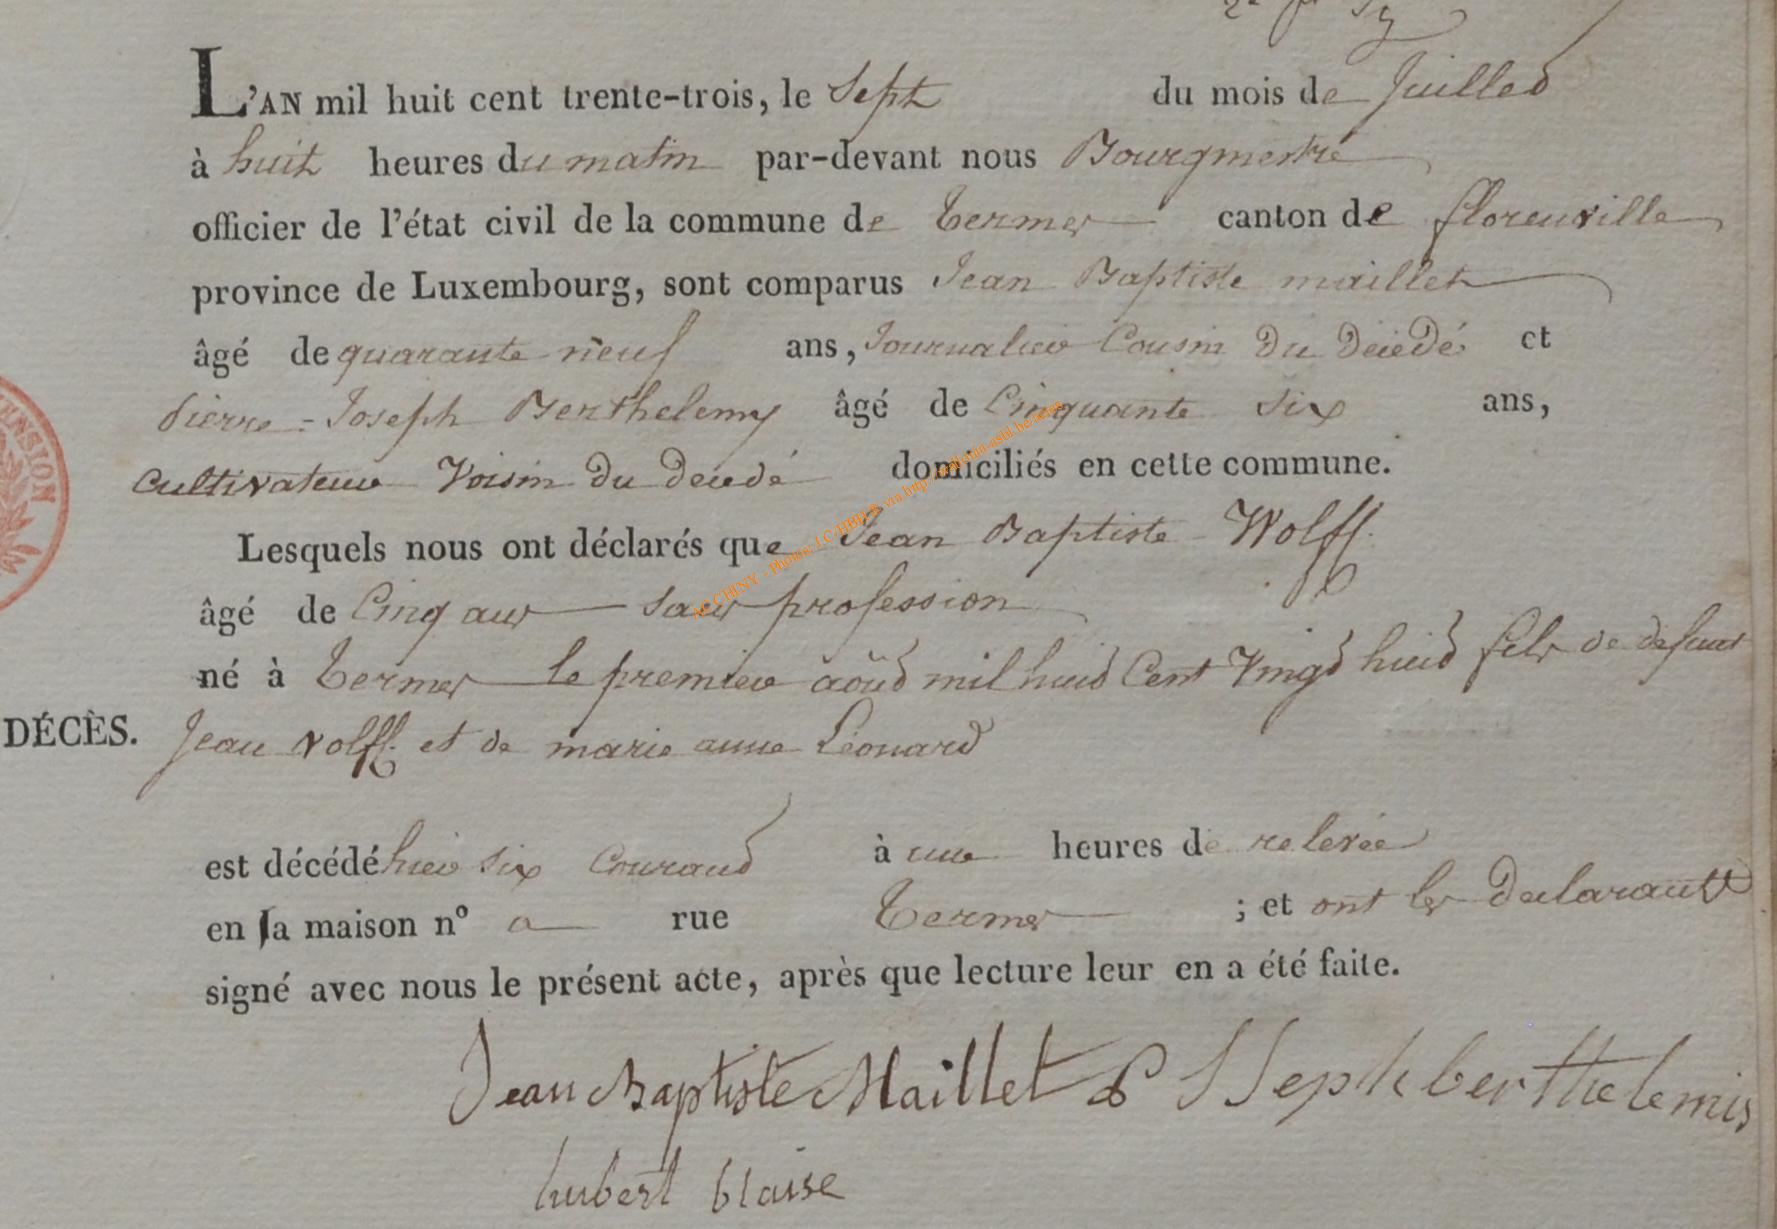 L'AN mil huit cent trente-trois, le Sept du mois de Juilled
à huit heures du matin par-devant nous Bourgmestre
officier de l'état civil de la commune de Termes canton de florenville
province de Luxembourg, sont comparus Jean Baptiste maillet
âgé de quarante neuf ans, Journalier Cousin du décédé et
pierre-Joseph Berthelemy âgé de Cinquante six ans,
Cultivateur Voisin du décédé domiciliés en cette commune.
Lesquels nous ont déclarés que Jean Baptiste Wolff
âgé de Cinq ans sans profession
né à Termes le premier aoûd mil huid Cent Vingd huid fils de defunt
DÉCÈS. Jean Volff et de marie anne Léonard
est décédé hier six Couraud à une heures de relevée
en la maison nº a rue Termes ; et ont les declarantt
signé avec nous le présent acte, après que lecture leur en a été faite.
Jean Baptiste Maillet P JJeph berthelemis
hubert blaise